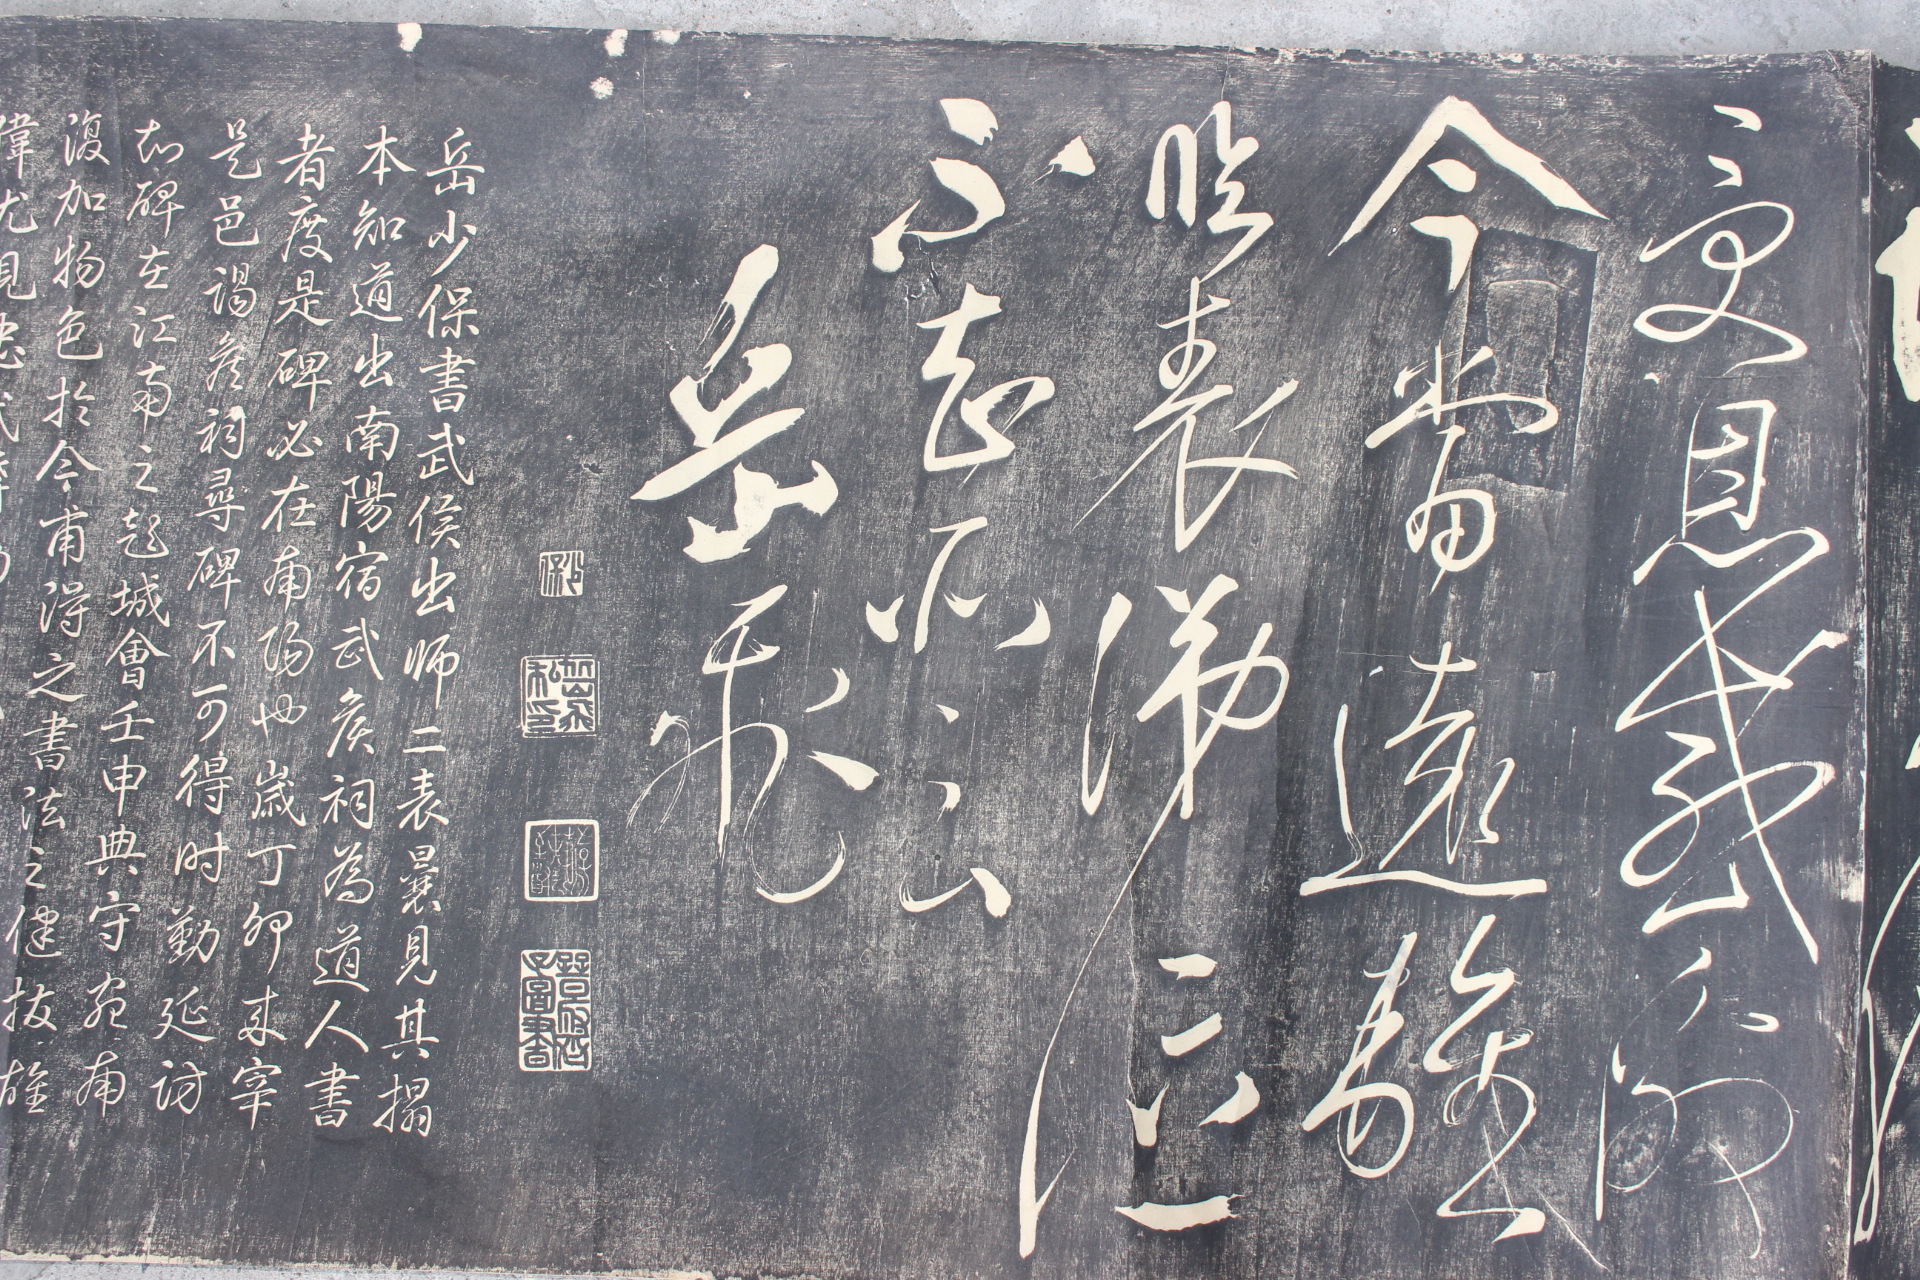 受恩感激
今當遠離
臨表涕泣
不知所云
岳飛
岳少保書武侯出师二表曩見其搨
本知道出南陽宿武侯祠為道人書
者度是碑必在南阳也歲丁卯来宰
是邑謁侯祠尋碑不可得时勤延訪
知碑在江南之彭城會壬申典守宛南
復加物色於今甫得之書法之健拔雄
偉尤見忠武